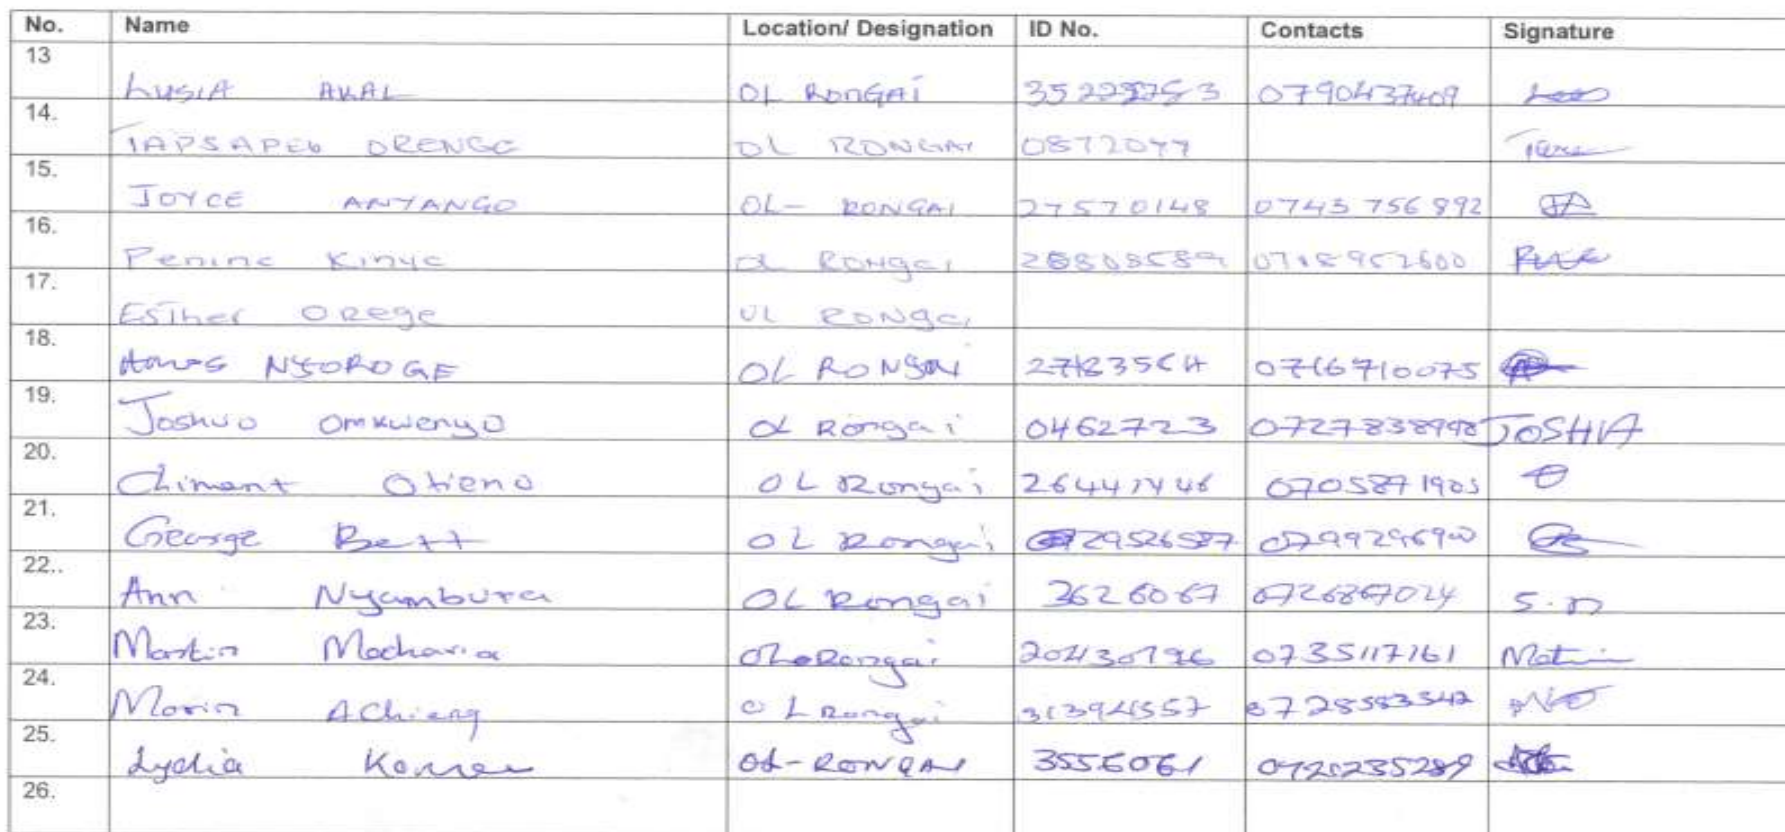 No. Name Location/ Designation ID No. Contacts Signature
13 LUSIA AKAL OL RONGAI 0790437409
14. TAPSAPEI ORENGE OL RONGAI 0872077
15. JOYCE ANYANGO OL- RONGAI 27570148 0743 756 892 JA
16. Penina Kinya OL RONgai
17. ESTher Orege OL RONgai
18. NJOROGE OL RONGAI 0716710075
19. Joshua Omkwenyo OL Rongai 0462723 0727838998 JOSHUA
20. Chimant Otieno OL Rongai 26441446 0705871903
21. George Bett OL Rongai 29526587 0799296900
22.. Ann Nyambura OL Rongai 3626067 0726867024 S.n
23. Martin Macharia OL Rongai 20430796 0735117161
24. Morin Achieng OL Rongai 0728583542
25. Lydia OL-RONGAI 3556061 0720235289
26.